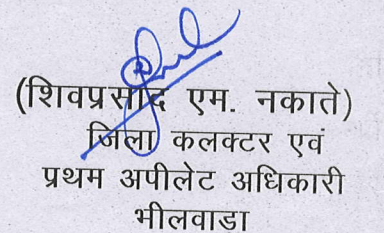 (शिवप्रसाद एम. नकाते)
जिला कलक्टर एवं
प्रथम अपीलेट अधिकारी
भीलवाडा